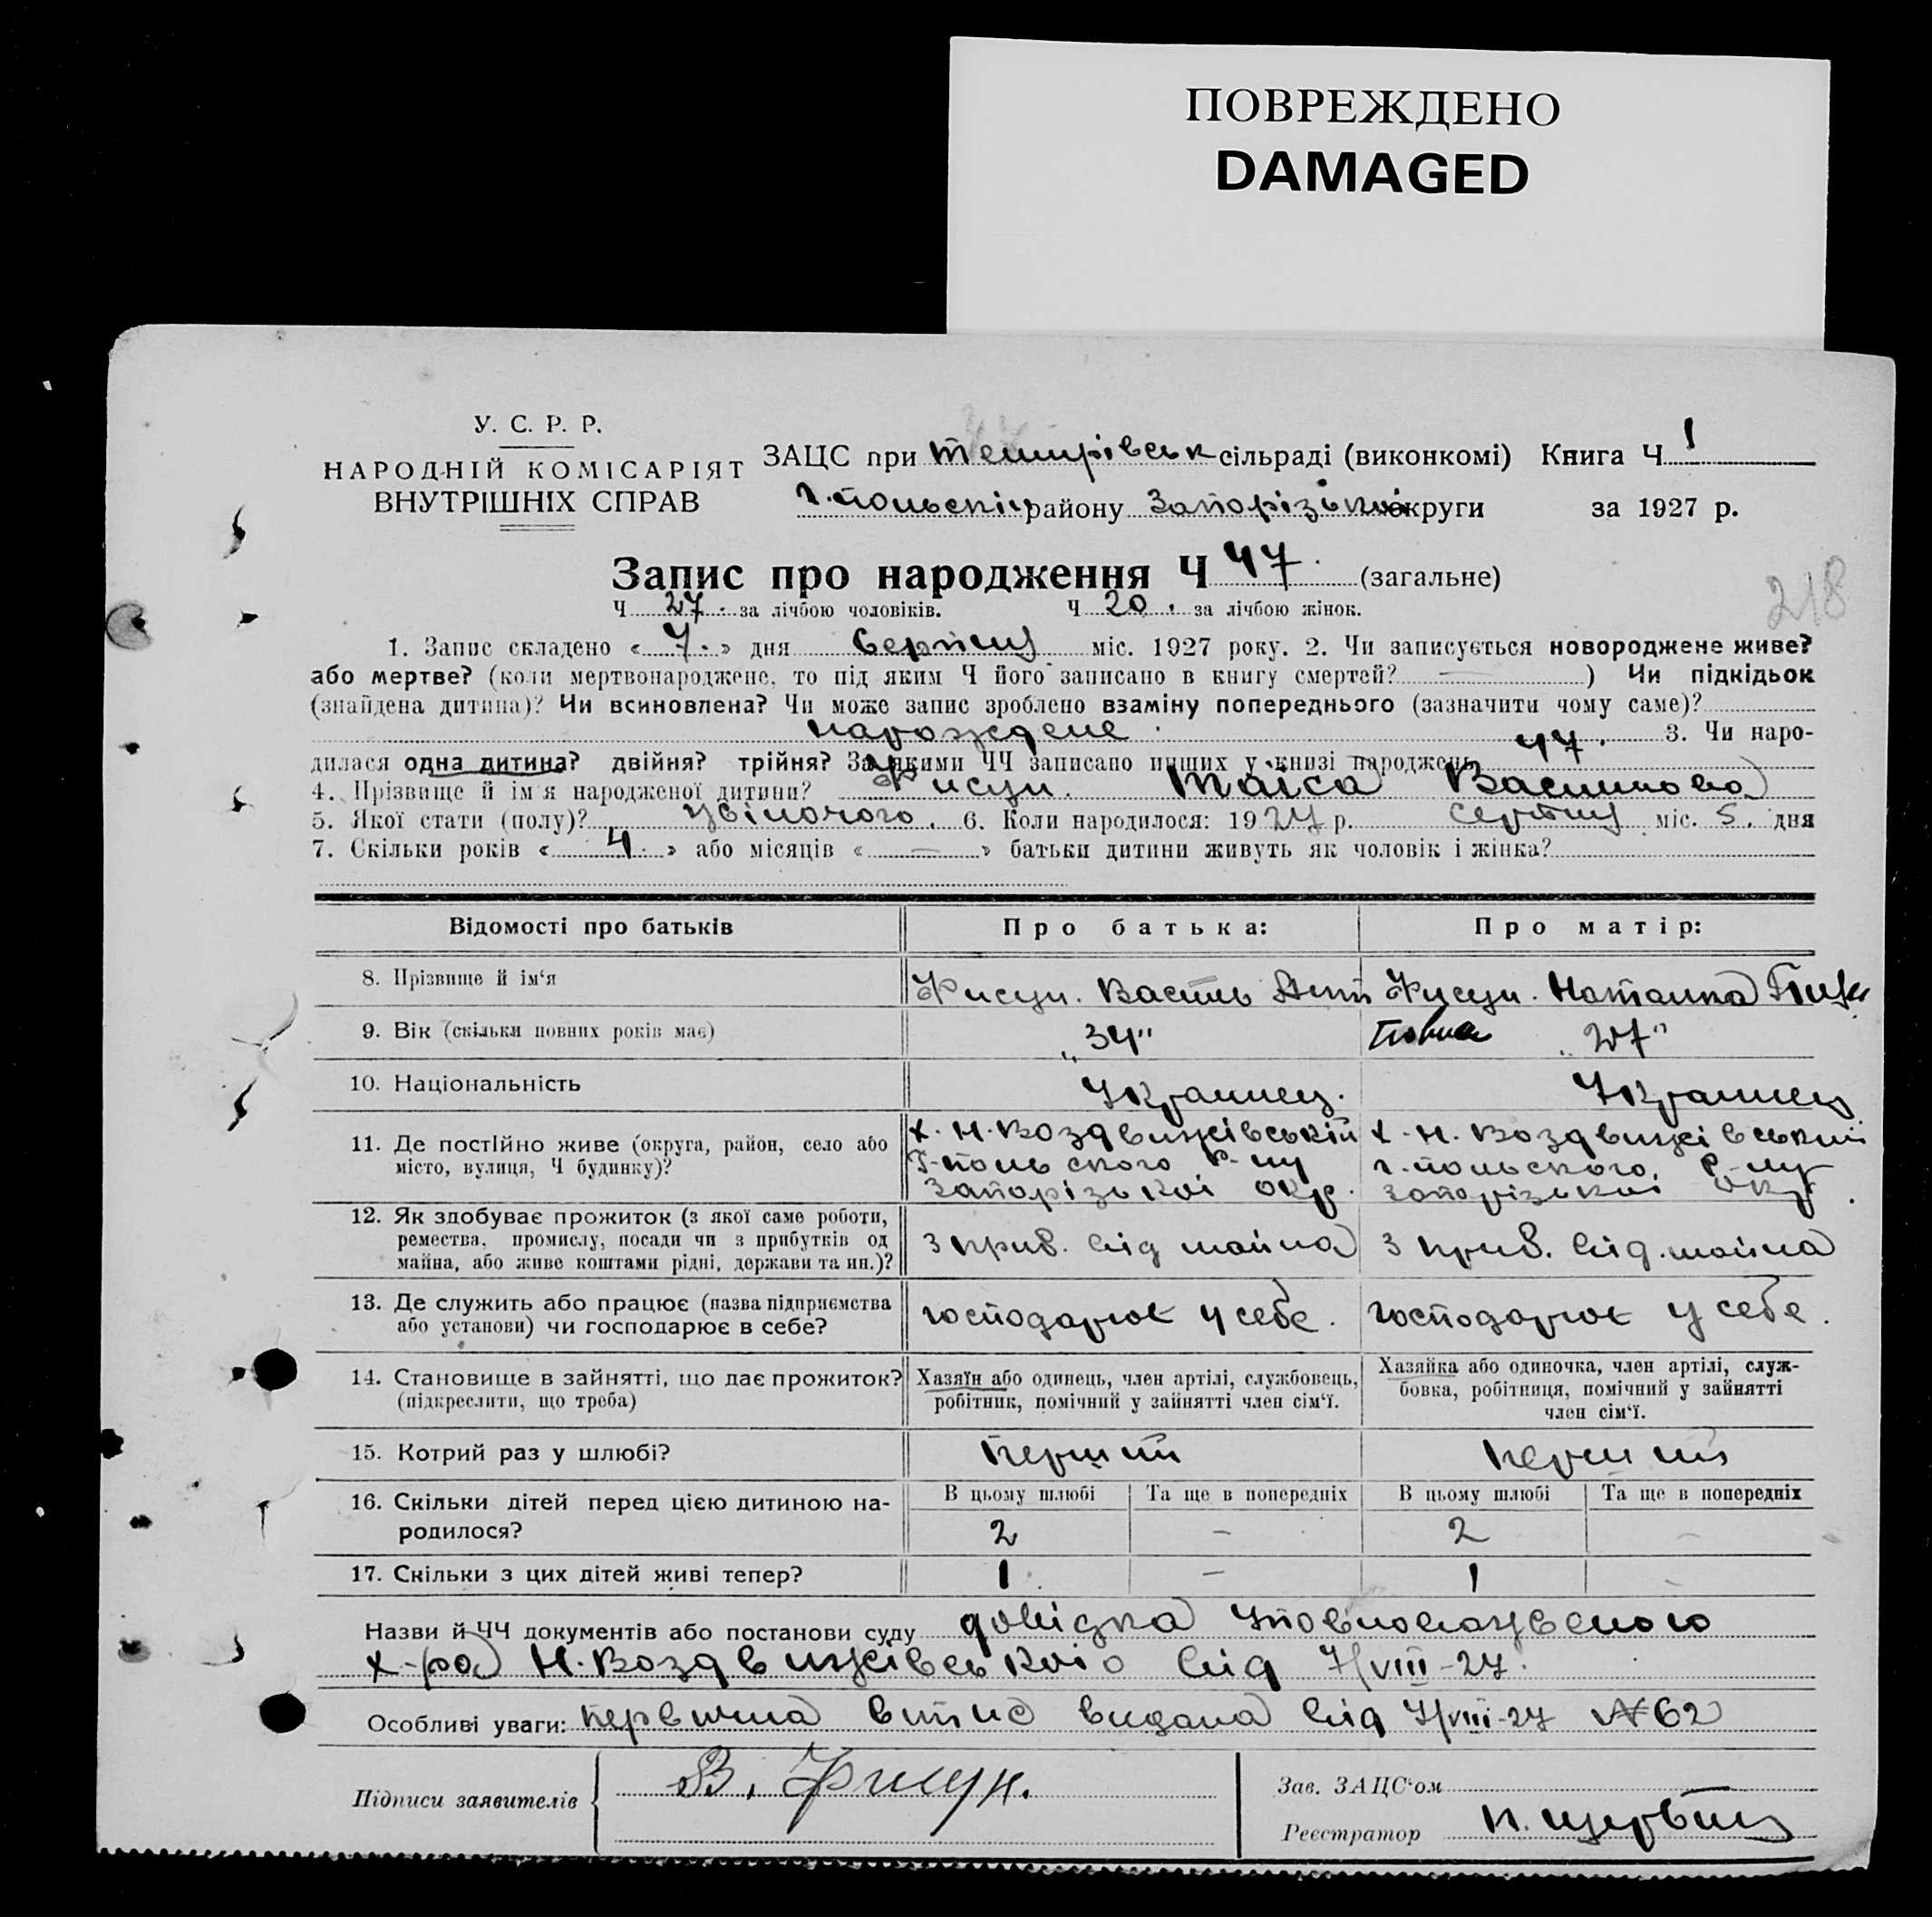 ПОВРЕЖДЕНО
DAMAGED
У. С. Р. Р.
НАРОДНІЙ КОМІСАРІЯТ
ВНУТРІШНІХ СПРАВ
ЗАЦС при Темирівськ сільраді (виконкомі) Книга Ч 1
Г.польскі району Запорізької округи за 1927 р.
Запис про народження Ч 47. (загальне)
Ч 27. за лічбою чоловіків. Ч 20. за лічбою жінок.
218
1. Запис складено « 7. » дня Серпня міс. 1927 року. 2. Чи записується новороджене живе?
або мертве? (коли мертвонароджене, то під яким Ч його записано в книгу смертей? — ) Чи підкідьок
(знайдена дитина)? Чи всиновлена? Чи може запис зроблено взаміну попереднього (зазначити чому саме)?
народжене 3. Чи наро-
дилася одна дитина? двійня? трійня? За якими ЧЧ записано инших у книзі народжень 47.
4. Прізвище й ім'я народженої дитини? Фисун. Таіса Васильова
5. Якої статі (полу)? жіночого. 6. Коли народилося: 1927 р. Серпня міс. 5. дня
7. Скільки років « 4 » або місяців « — » батьки дитини живуть як чоловік і жінка?
Відомості про батьків Про батька: Про матір:
8. Прізвище й ім'я Фисун. Василь Фисун. Наталка
9. Вік (скільки повних років має) „34" „27"
10. Національність Украинец. Украинец
11. Де постійно живе (округа, район, село або місто, вулиця, Ч будинку)?
х. Н. Воздвижівській х. Н. Воздвижівський
Г-польского Р-ну Г.-польского Р-ну
Запорізькоі окр. Запорізькоі окр.
12. Як здобуває прожиток (з якої саме роботи,
ремества, промислу, посади чи з прибутків од
майна, або живе коштами рідні, держави та ин.)?
з приб. від майна з приб. від майна
13. Де служить або працює (назва підприємства
або установи) чи господарює в себе?
господарює у себе. господарює у себе.
14. Становище в зайнятті, що дає прожиток?
(підкреслити, що треба)
Хазяїн або одинець, член артілі, службовець,
робітник, помічний у зайнятті член сім'ї.
Хазяйка або одиночка, член артілі, служ-
бовка, робітниця, помічний у зайнятті
член сім'ї.
15. Котрий раз у шлюбі? Перший Перший
16. Скільки дітей перед цією дитиною на-
родилося?
В цьому шлюбі Та ще в попередніх В цьому шлюбі Та ще в попередніх
2 – 2 –
17. Скільки з цих дітей живі тепер? 1 – 1 –
Назви й ЧЧ документів або постанови суду довідка Уповноваженого
х-ра Н. Воздвижівського від 7/VIII-27.
Особливі уваги: первична витис видана від 7/VIII-27 № 62
Підписи заявителів В. Фисун.
Зав. ЗАЦС'ом
Реєстратор